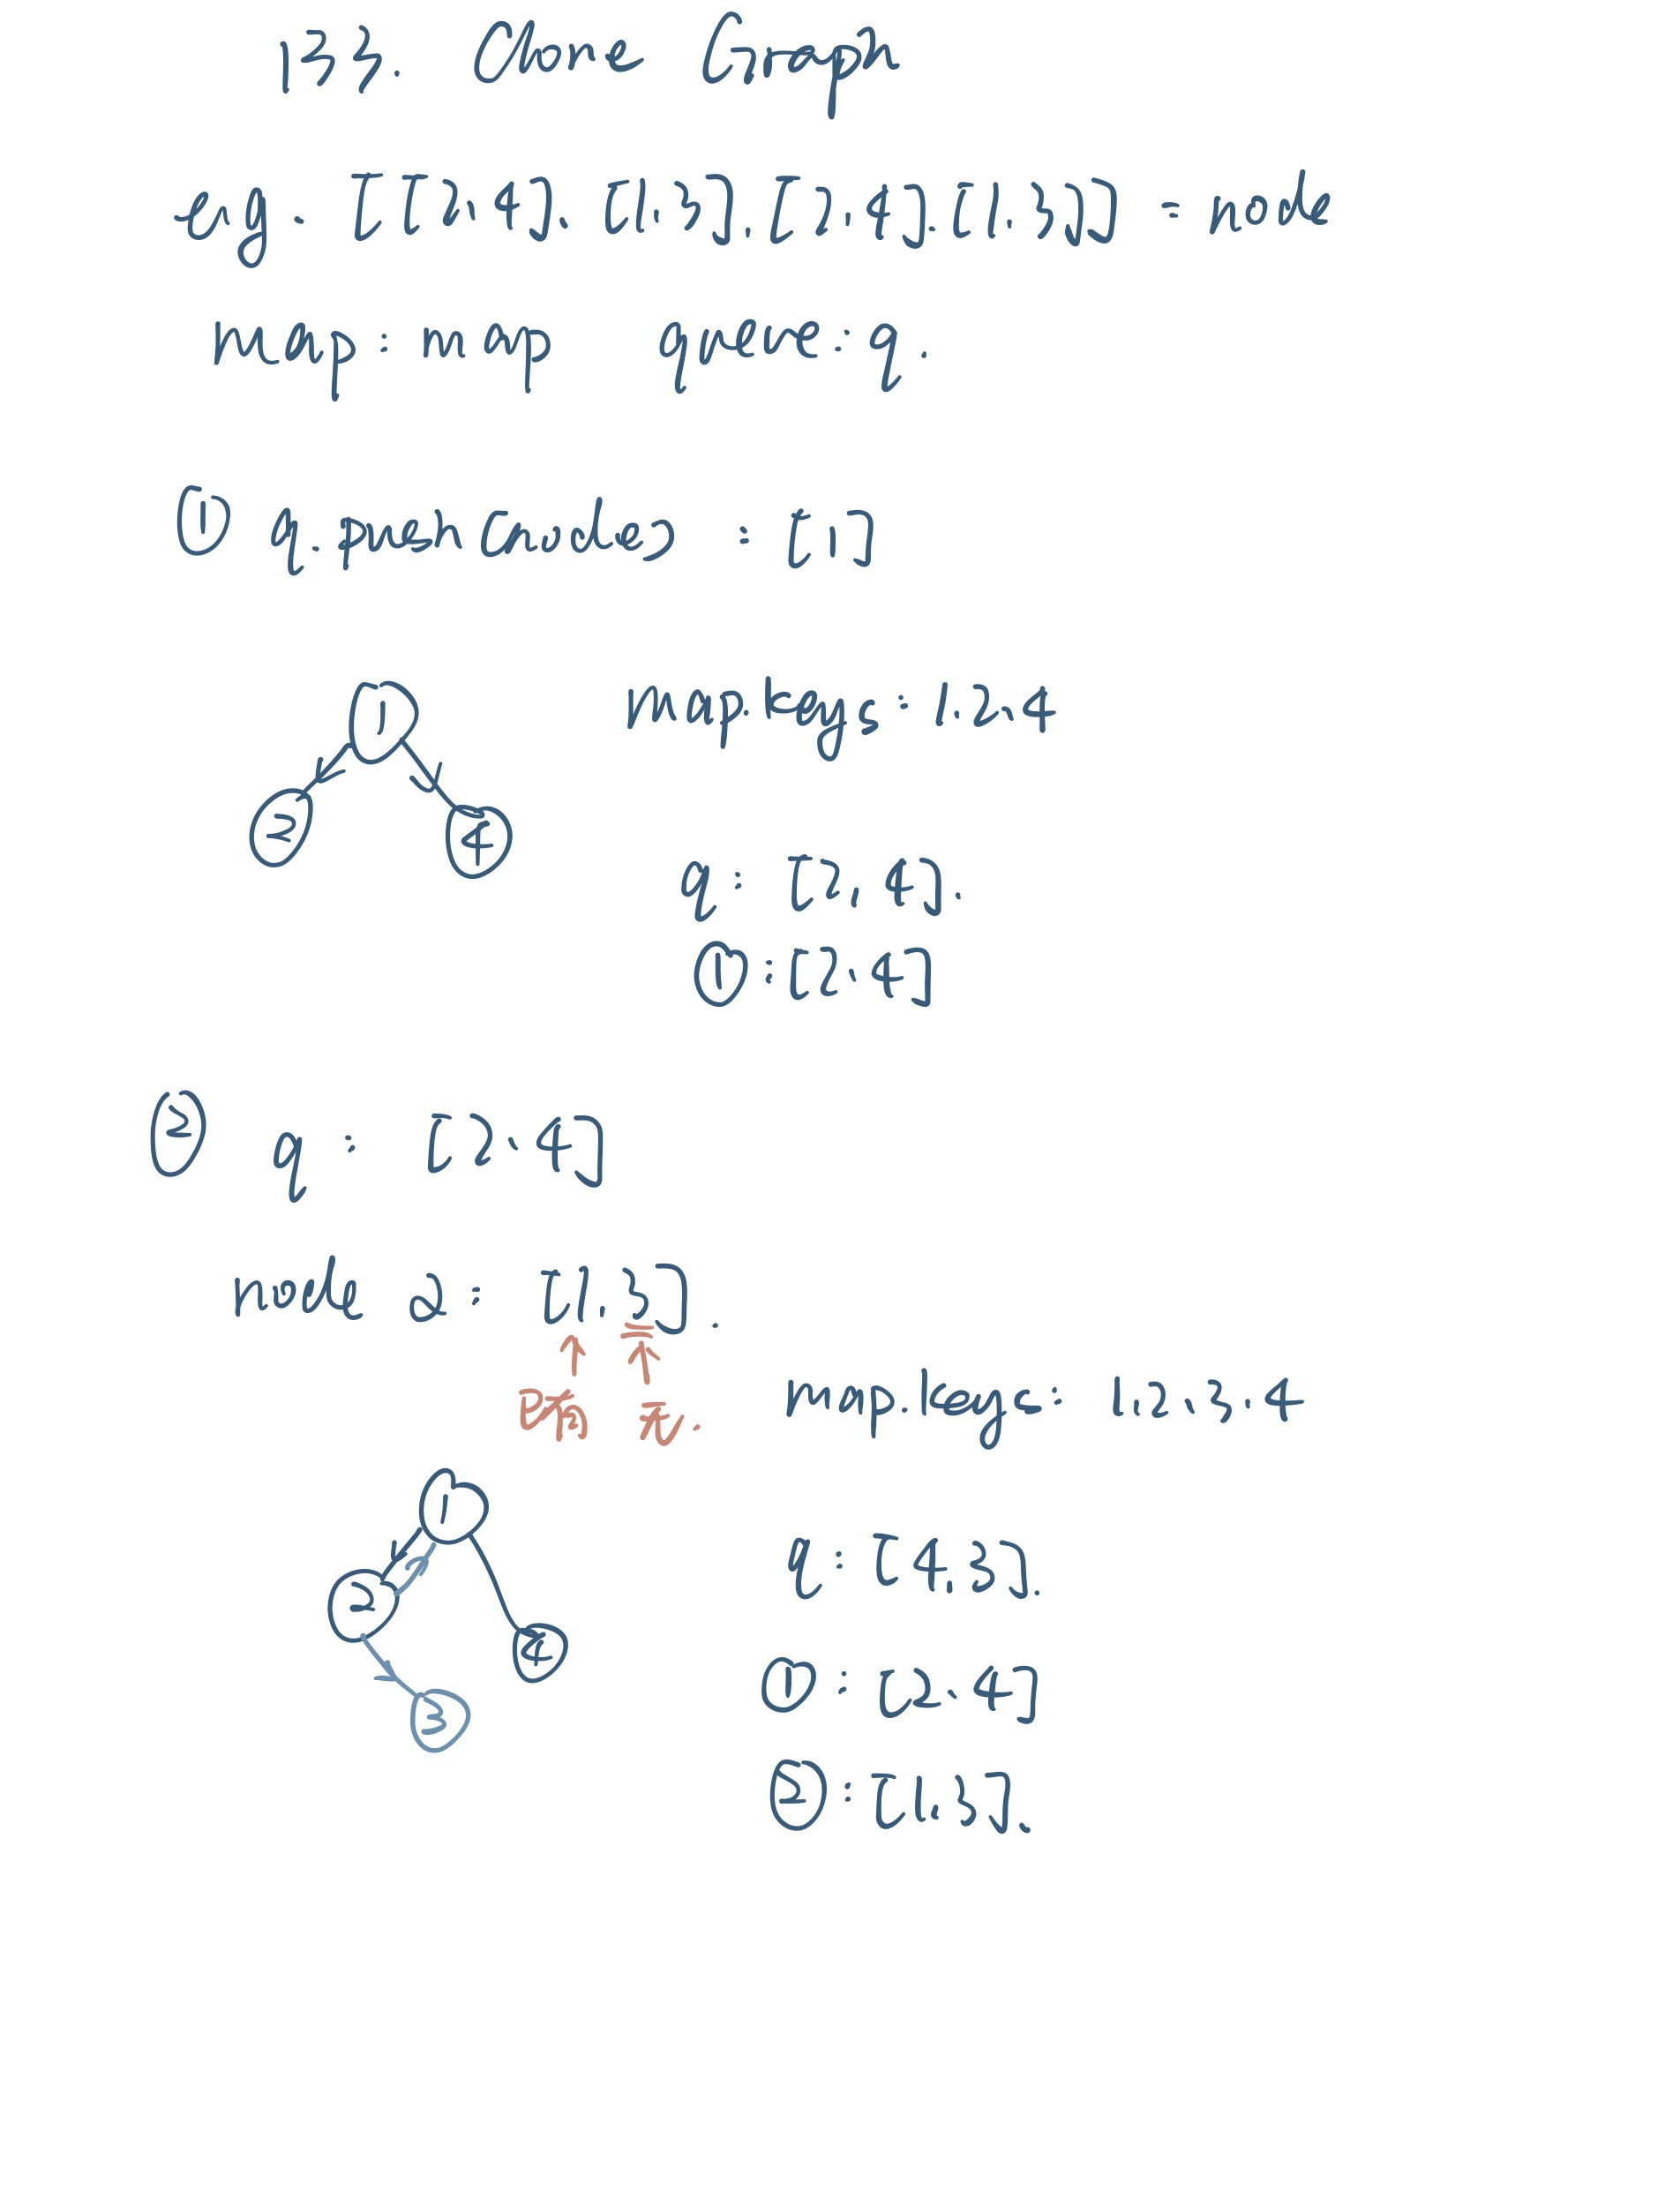 133. Clone Graph
eg. [[2,4]. [1.3].[2,4].[1.3]] = node
map: map queue: q.
① q.push(node) : [1]
1
map.keys: 1.2.4
2 4
q: [2,4].
①:[2.4]
② q: [2.4]
node 2: [1.3].
已有 无.
map.keys: 1.2.3.4
1
q: [4.3].
2
4
①: [2.4]
3
②: [1.3].